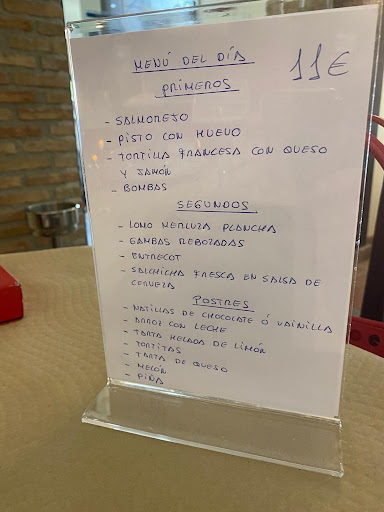 MENÚ DEL DÍA
11€
PRIMEROS
- SALMOREJO
- PISTO CON HUEVO
- TORTILLA FRANCESA CON QUESO
Y JAMÓN
- BOMBAS
SEGUNDOS
- LOMO MERLUZA PLANCHA
- GAMBAS REBOZADAS
- ENTRECOT
- SALCHICHA FRESCA EN SALSA DE
CERVEZA
POSTRES
- NATILLAS DE CHOCOLATE Ó VAINILLA
- ARROZ CON LECHE
- TARTA HELADA DE LIMÓN
- TORTITAS
- TARTA DE QUESO
- MELÓN
- PIÑA